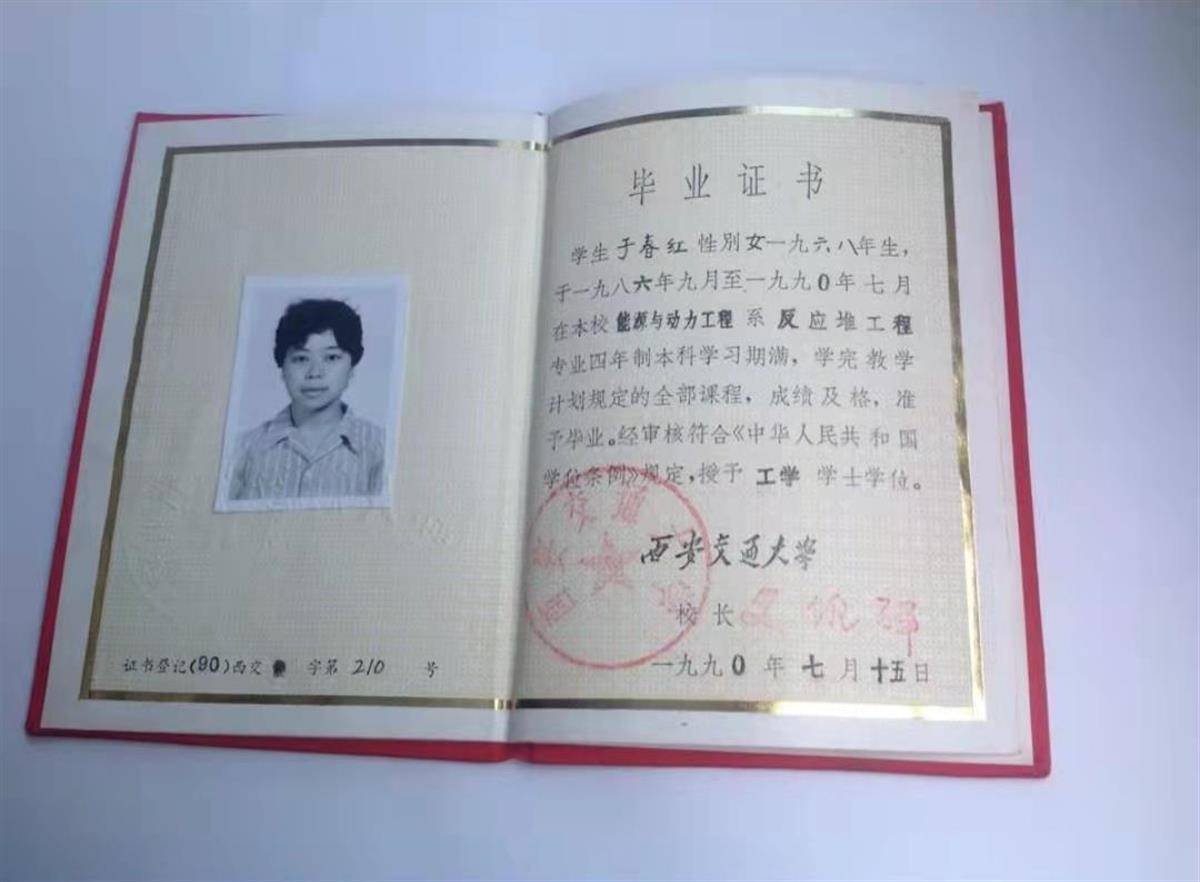 毕业证书
学生于春红性别女一九六八年生，
于一九八六年九月至一九九〇年七月
在本校能源与动力工程系反应堆工程
专业四年制本科学习期满，学完教学
计划规定的全部课程，成绩及格，准
予毕业。经审核符合《中华人民共和国
学位条例》规定，授予工学学士学位。
西安交通大学
校长
一九九〇年七月十五日
证书登记(90)西交 字第210号